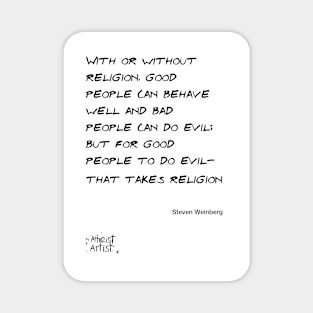 With or without
religion, good
people can behave
well and bad
people can do evil;
but for good
people to do evil-
that takes religion
Steven Weinberg
Atheist
Artist